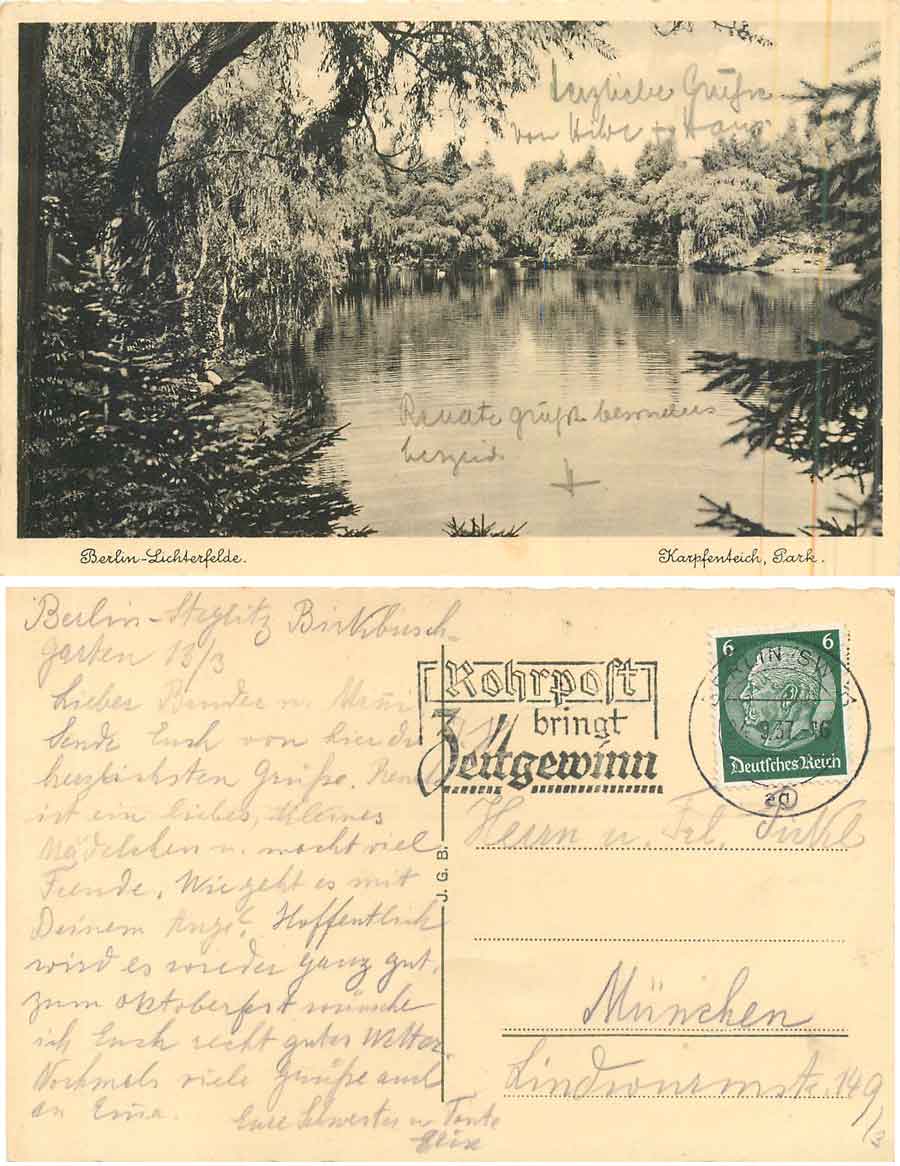 Herzliche Grüße
von Hilde + Hans
Renate grüßt besonders
Berlin-Lichterfelde.
Karpfenteich, Park.
Berlin-Steglitz Birkbusch-
garten 13/3
Lieber Bruder u.
Sende Euch von hier die
herzlichsten Grüße.
ist ein liebes, kleines
Mädelchen u. macht viel
Freude. Wie geht es mit
Deinem Auge? Hoffentlich
wird es wieder ganz gut.
zum Oktoberfest wünsche
ich Euch recht gutes Wetter
Nochmals viele Grüße auch
an Erna.
Eure Schwester u Tante
Rohrpost
bringt
Zeitgewinn
6 6
BERLIN SW
9.37
Deutsches Reich
J. G. B.
Herrn u. Frl.
München
Lindwurmstr. 149/3